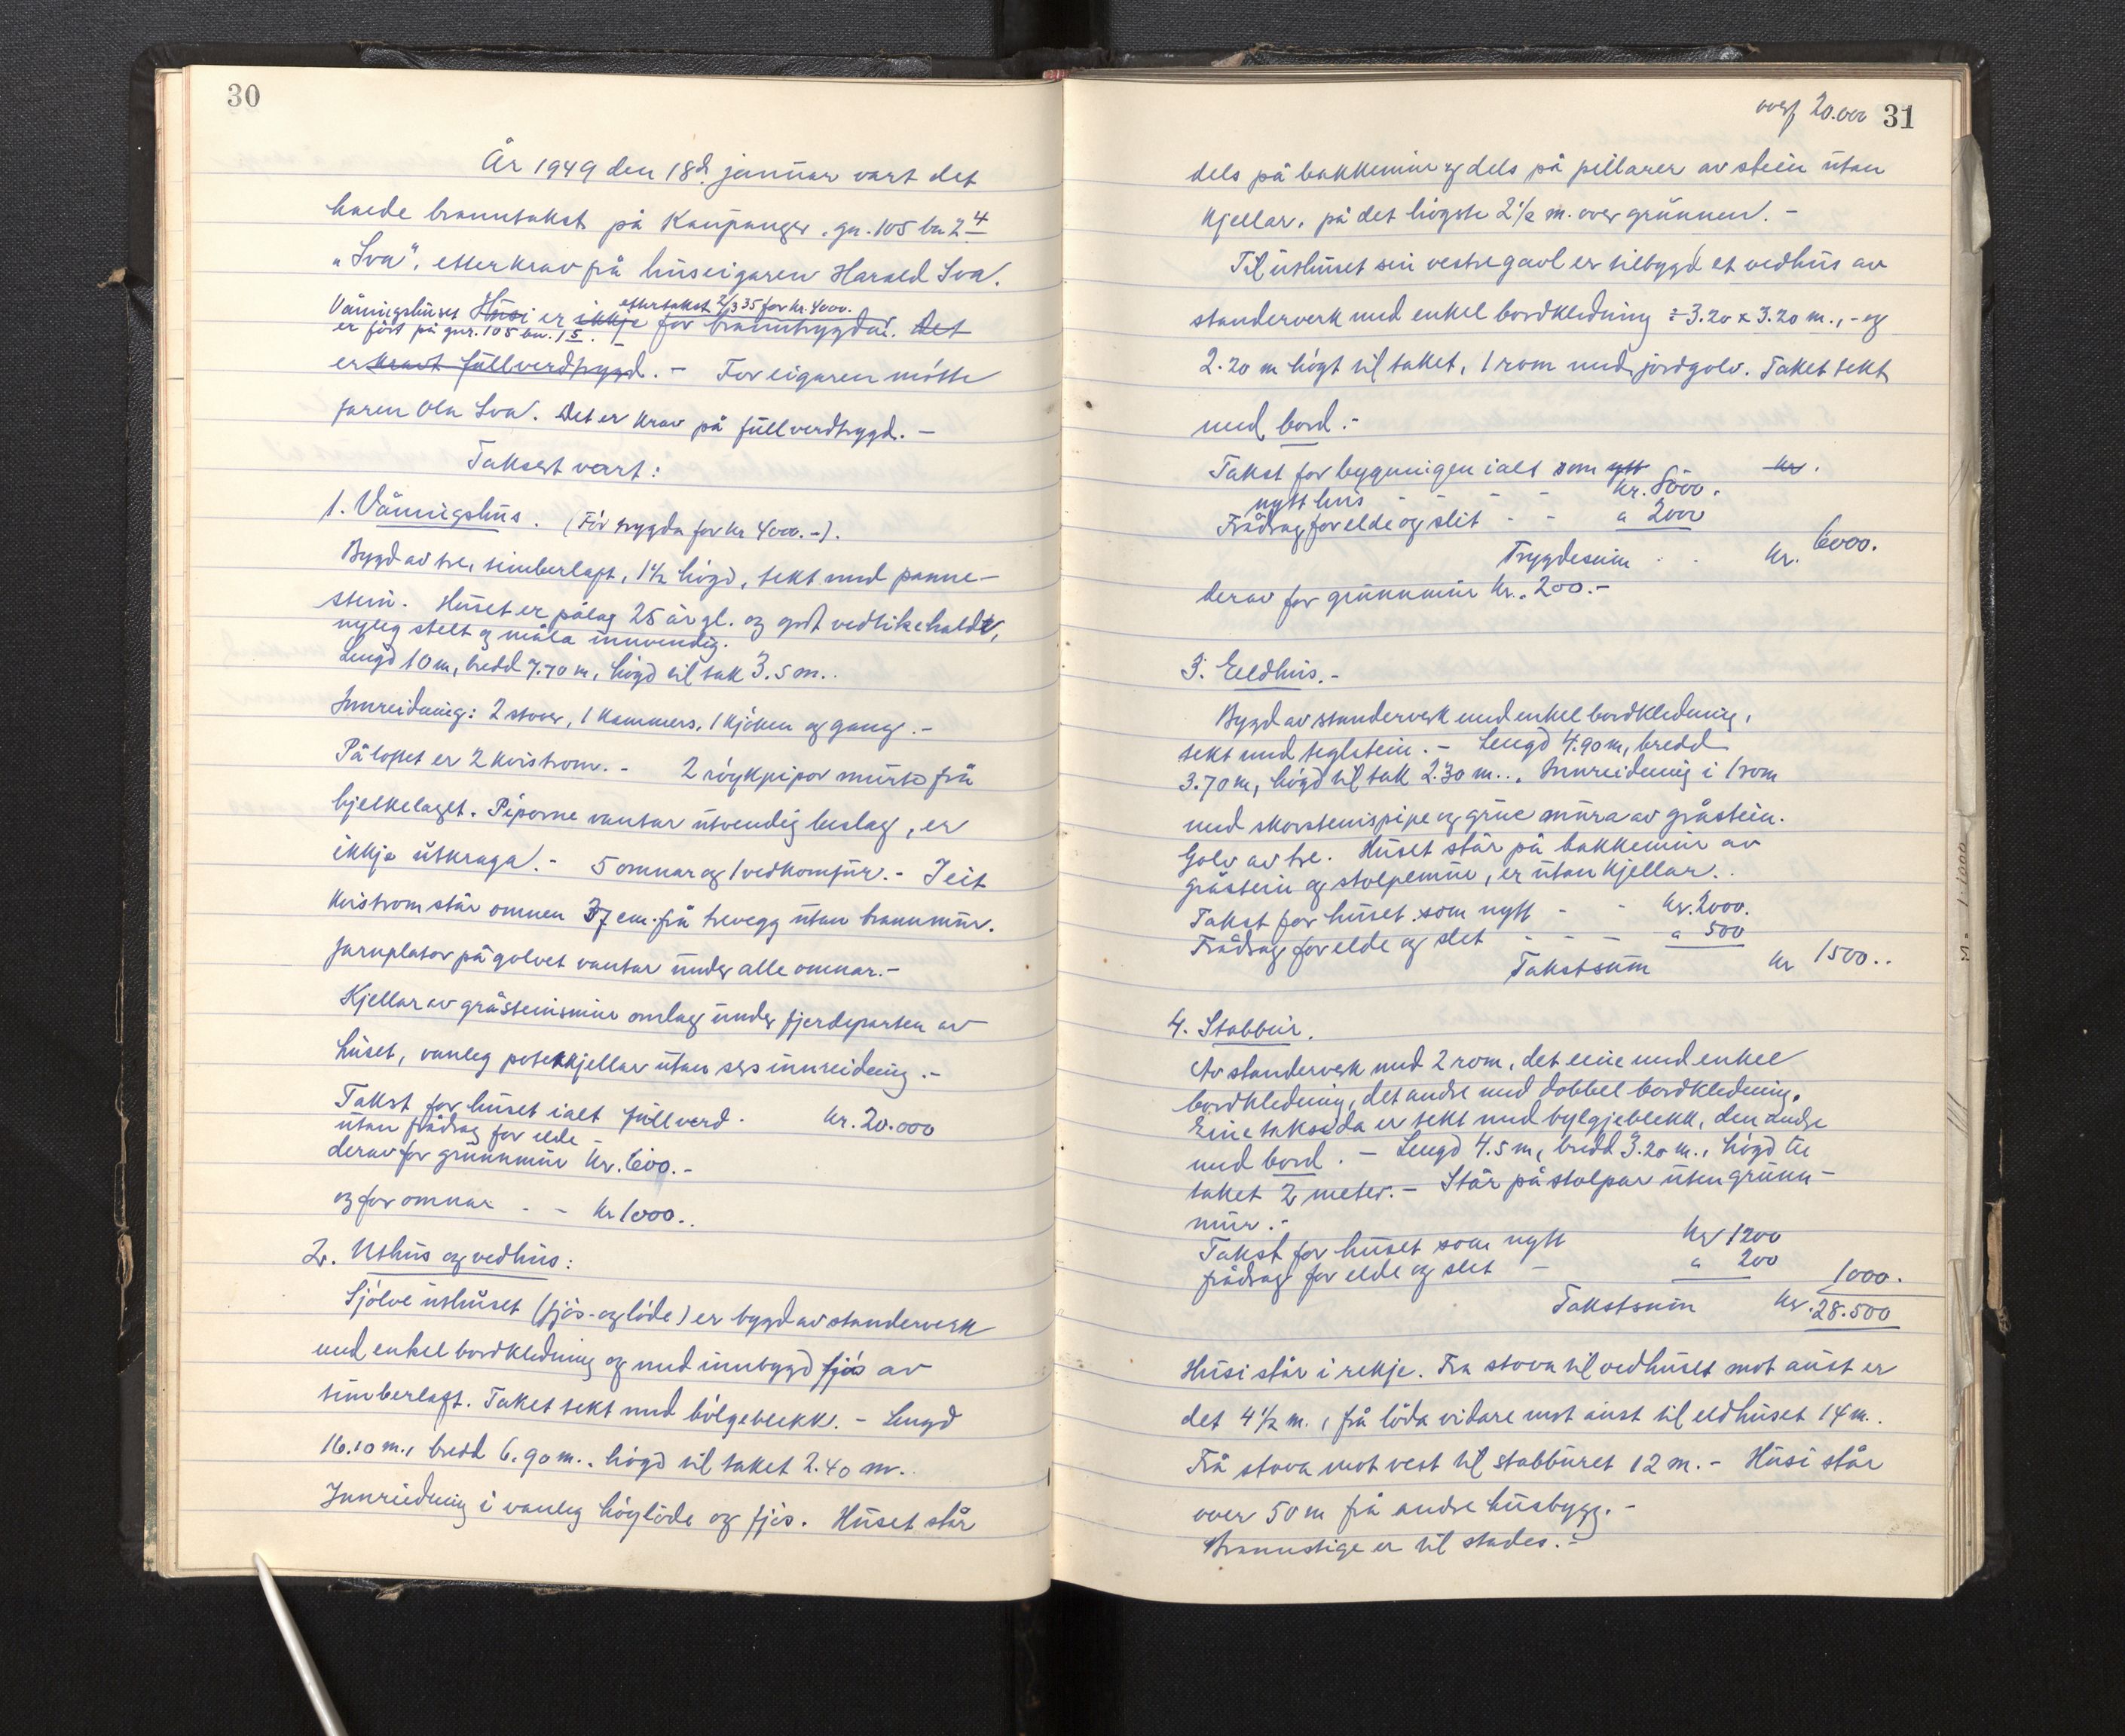 30
År 1949 den 18d. januar vart det
halde branntakst på Kaupanger, gn. 105 bn 24
"Lva", etter krav frå huseigaren Harald Lva.
ettertakst 2/3 35 for kr. 4000.
Våningshuset Husi er ikkje før branntrygda. Det
er ført på gnr. 105 bn. 15.
er kravt fullverdtrygd. - For eigaren møtte
faren Ola Lva. Det er krav på fullverdtrygd. -
Taksert vart:
1. Våningshus. (Før trygda for kr 4000.-).
Bygd av tre, timberlaft, 1½ høgd, tekt med panne-
stein. Huset er pålag 25 år gl. og godt vedlikehalde,
nyleg stelt og måla innvendig.
Lengd 10 m, bredd 7.70 m, høgd til tak 3.5 m..
Innreidning: 2 stover, 1 kammers, 1 kjøken og gang. -
På loftet er 2 kvistrom. - 2 røykpipor murte frå
bjelkelaget. Piporne vantar utvendig beslag, er
ikkje utkraga. - 5 omnar og 1 vedkomfur. - I eit
kvistrom står omnen 37 cm. frå trevegg utan brannmur.
Jarnplator på golvet vantar under alle omnar. -
Kjellar av gråsteinsmur omlag under fjerdeparten av
huset, vanleg potetkjellar utan sers innreidning. -
Takst for huset ialt fullverd. kr. 20.000
utan frådrag for elde -
derav for grunnmur kr. 600. -
og for omnar - - kr 1000..
2. Uthus og vedhus:
Sjølve uthuset (fjøs- og løde) er bygd av standerverk
med enkel bordkledning og med innbygd fjøs av
timberlaft. Taket tekt med bølgeblekk. - Lengd
16.10 m., bredd 6.90 m.. høgd til taket 2.40 m..
Innreidning i vanleg høyløde og fjøs. Huset står
overf 20.000 31
dels på bakkemur og dels på pillarer av stein utan
kjellar, på det høgste 2½ m. over grunnen. -
Til uthuset sin vestre gavl er tilbygd et vedhus av
standerverk med enkel bordkledning = 3.20 x 3.20 m., - og
2.20 m høgt til taket, 1 rom med jordgolv. Taket tekt
med bord. -
Takst for bygningen ialt som nytt kr.
nytt hus - - - - kr. 8000.
Frådrag for elde og slit - - " 2000
Trygdesum . . kr. 6000.
derav for grunnmur kr. 200. -
3. Eldhus. -
Bygd av standerverk med enkel bordkledning,
tekt med teglstein. - Lengd 4.90 m, bredd
3.70 m, høgd til tak 2.30 m... Innreidning i 1 rom
med skorsteinspipe og grue mura av gråstein.
Golv av tre. Huset står på bakkemur av
gråstein og stolpemur, er utan kjellar..
Takst for huset som nytt - - kr. 2000.
Frådrag for elde og slet - - - " 500
Takstsum kr 1500..
4. Stabbur.
Av standerverk med 2 rom, det eine med enkel
bordkledning, det andre med dobbel bordkledning.
Eine taksida er tekt med bylgjeblekk, den andre
med bord. - Lengd 4.5 m, bredd 3.20 m., høgd til
taket 2 meter. - Står på stolpar uten grunn-
mur. -
Takst for huset som nytt kr 1200
frådrag for elde og slet - " 200 1000.
Takstsum kr. 28.500
Husi står i rekje. Fra stova til vedhuset mot aust er
det 4½ m., frå løda vidare mot aust til eldhuset 14 m..
Frå stova mot vest til stabburet 12 m. - Husi står
over 50 m frå andre husbygg. -
Brannstige er til stades. -